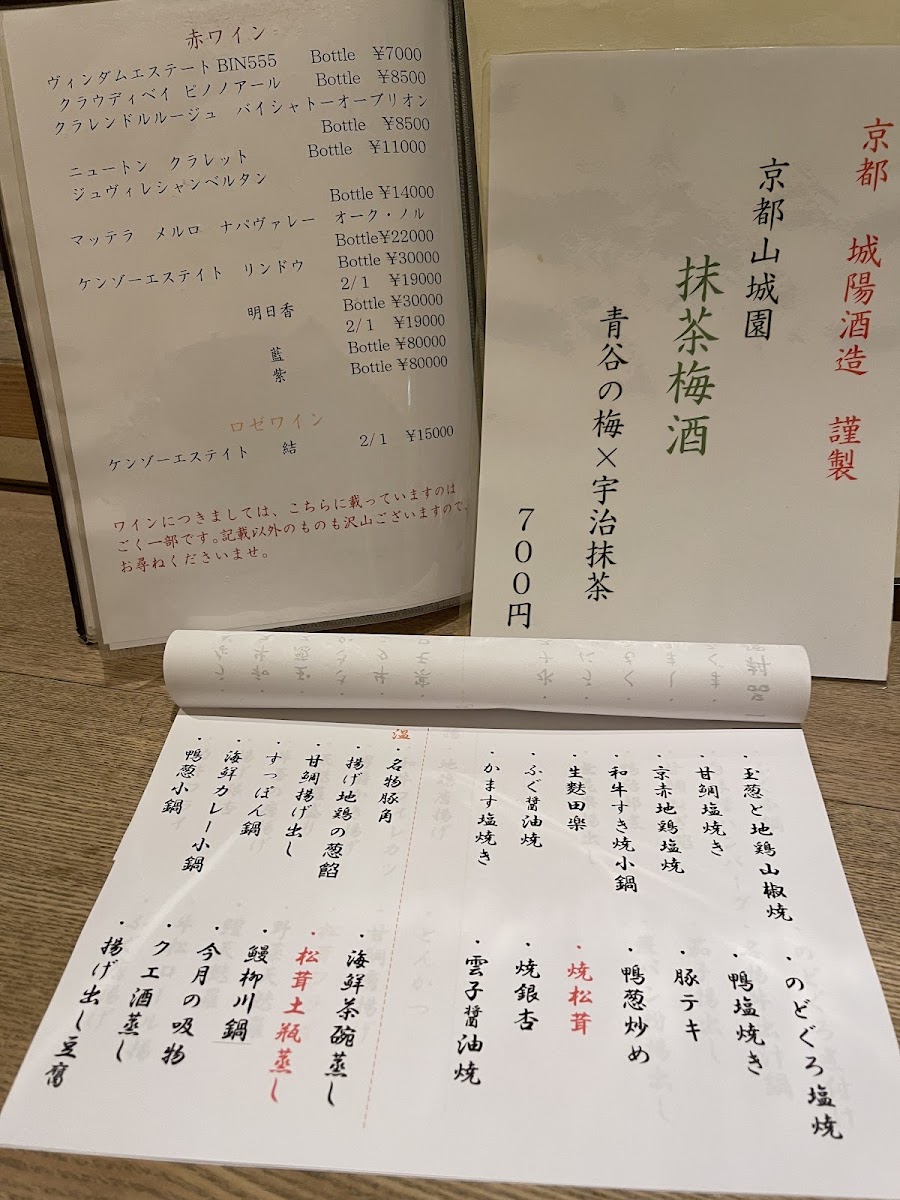 赤ワイン
ヴィンダムエステートBIN555 Bottle ¥7000
クラウディベイ ピノノアール Bottle ¥8500
クラレンドルルージュ バイシャトーオーブリオン
Bottle ¥8500
ニュートン クラレット Bottle ¥11000
ジュヴィレシャンベルタン
Bottle ¥14000
マッテラ メルロ ナパヴァレー オーク・ノル
Bottle¥22000
ケンゾーエステイト リンドウ Bottle ¥30000
2/1 ¥19000
明日香 Bottle ¥30000
2/1 ¥19000
藍 Bottle ¥80000
紫 Bottle ¥80000
ロゼワイン
ケンゾーエステイト 結 2/1 ¥15000
ワインにつきましては、こちらに載っていますのは
ごく一部です。記載以外のものも沢山ございますので、
お尋ねくださいませ。
京都 城陽酒造 謹製
京都山城園
抹茶梅酒
青谷の梅×宇治抹茶
700円
・玉葱と地鶏山椒焼
・甘鯛塩焼き
・京赤地鶏塩焼
・和牛すき焼小鍋
・生麩田楽
・ふぐ醤油焼
・かます塩焼き
・のどぐろ塩焼
・鴨塩焼き
・豚テキ
・鴨葱炒め
・焼松茸
・焼銀杏
・雲子醤油焼
温
・名物豚角
・揚げ地鶏の葱餡
・甘鯛揚げ出し
・すっぽん鍋
・海鮮カレー小鍋
・鴨葱小鍋
・海鮮茶碗蒸し
・松茸土瓶蒸し
・鰻柳川鍋
・今月の吸物
・クエ酒蒸し
・揚げ出し豆腐